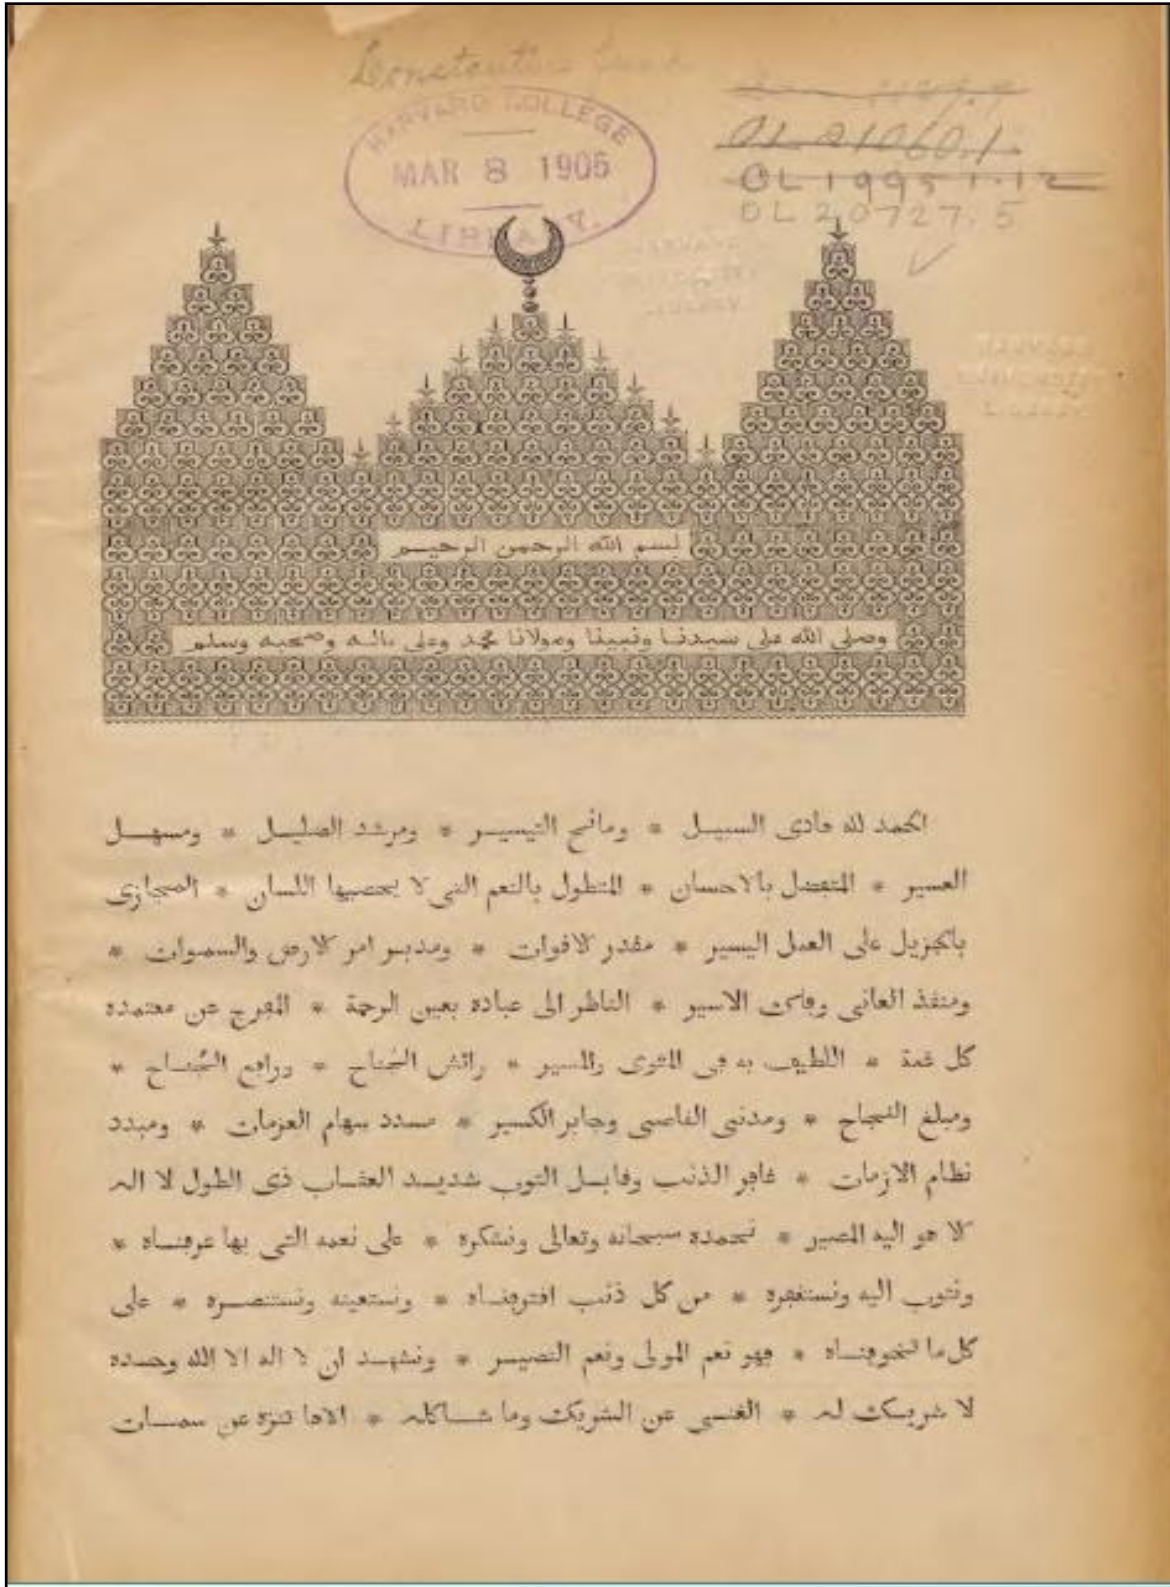 Constantius
HARVARD COLLEGE
MAR 8 1906
LIBRARY.
OL 21060.1.
OL 19951.12
OL 20727.5
بسم الله الرحمن الرحيم
وصلى الله على سيدنا ونبينا ومولانا محمد وعلى ءاله وصحبه وسلم
الحمد لله هادى السبيل * ومانح التيسير * ومرشد الضليل * ومسهل
العسير * المتفضل بالاحسان * المتطول بالنعم التى لا يحصيها اللسان * المجازى
بالجزيل على العمل اليسير * مقدر الاقوات * ومدبر امر الارض والسموات *
ومنقذ العانى وفاك الاسير * الناظر الى عباده بعين الرحمة * المفرج عن معتمده
كل غمة * اللطيف به فى المثوى والمسير * رائش الجناح * ورافع الجُناح *
ومبلغ النجاح * ومدنى القاصى وجابر الكسير * مسدد سهام العزمات * ومبدد
نظام الازمات * غافر الذنب وقابل التوب شديد العقاب ذى الطول لا اله
الا هو اليه المصير * نحمده سبحانه وتعالى ونشكره * على نعمه التى بها عرفناه *
ونتوب اليه ونستغفره * من كل ذنب اقترفناه * ونستعينه ونستنصره * على
كل ما تخوفناه * فهو نعم المولى ونعم النصير * ونشهد ان لا اله الا الله وحده
لا شريك له * الغنى عن الشريك وما شاكله * الاها تنزه عن سمات